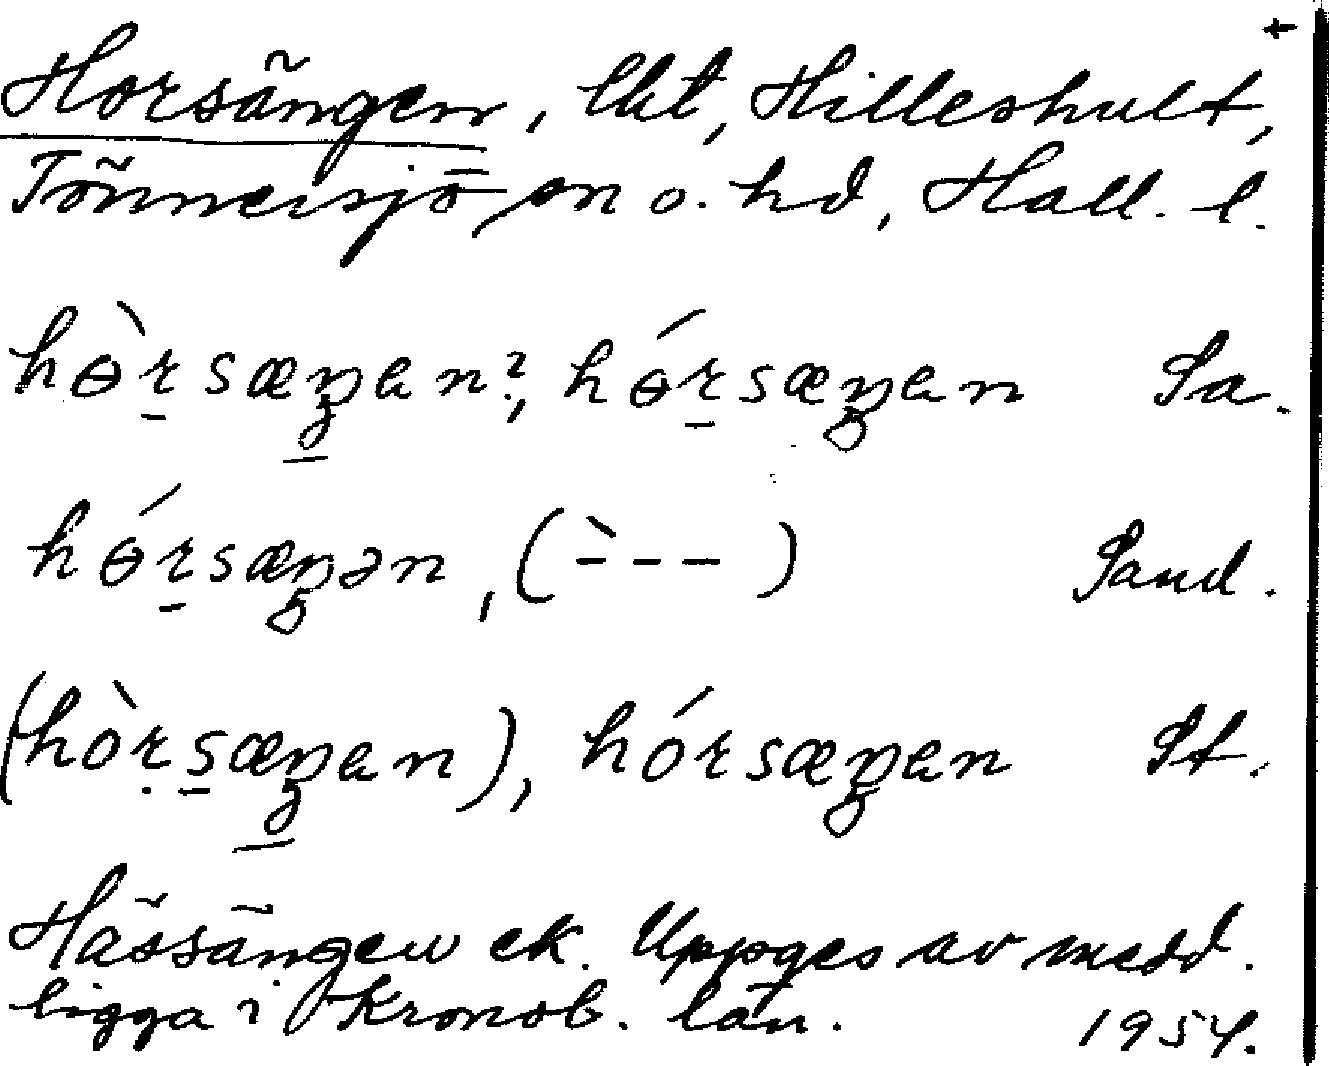 +
Horsängen, lkt, Hilleshult,
Tönnersjö sn o. hd, Hall. l.
hɵ̀rsæŋen?, hɵ́rsæŋen Sa.
hɵ́rsæŋən, (–̀ – –) Sand.
(hòrsæŋen), hórsæŋen St.
Hässängen ek. Uppges av medd.
ligga i Kronob. län. 1954.